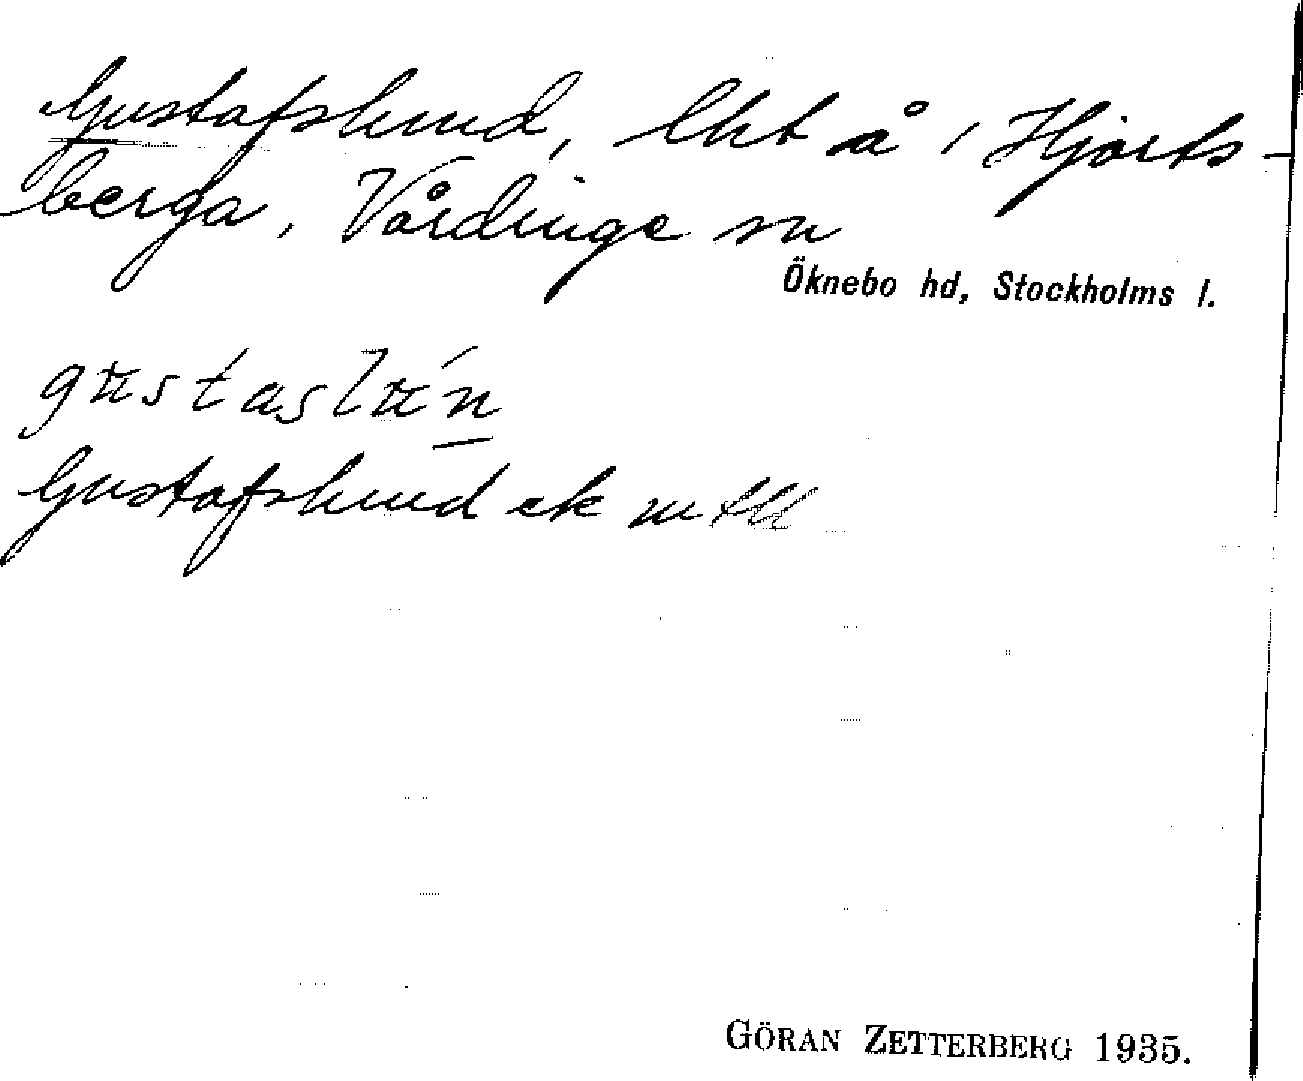 Gustafslund, lht å 1 Hjorts-
berga, Vårdinge sn
Öknebo hd, Stockholms l.
gustaslún
Gustafslund ek
GÖRAN ZETTERBERG 1935.